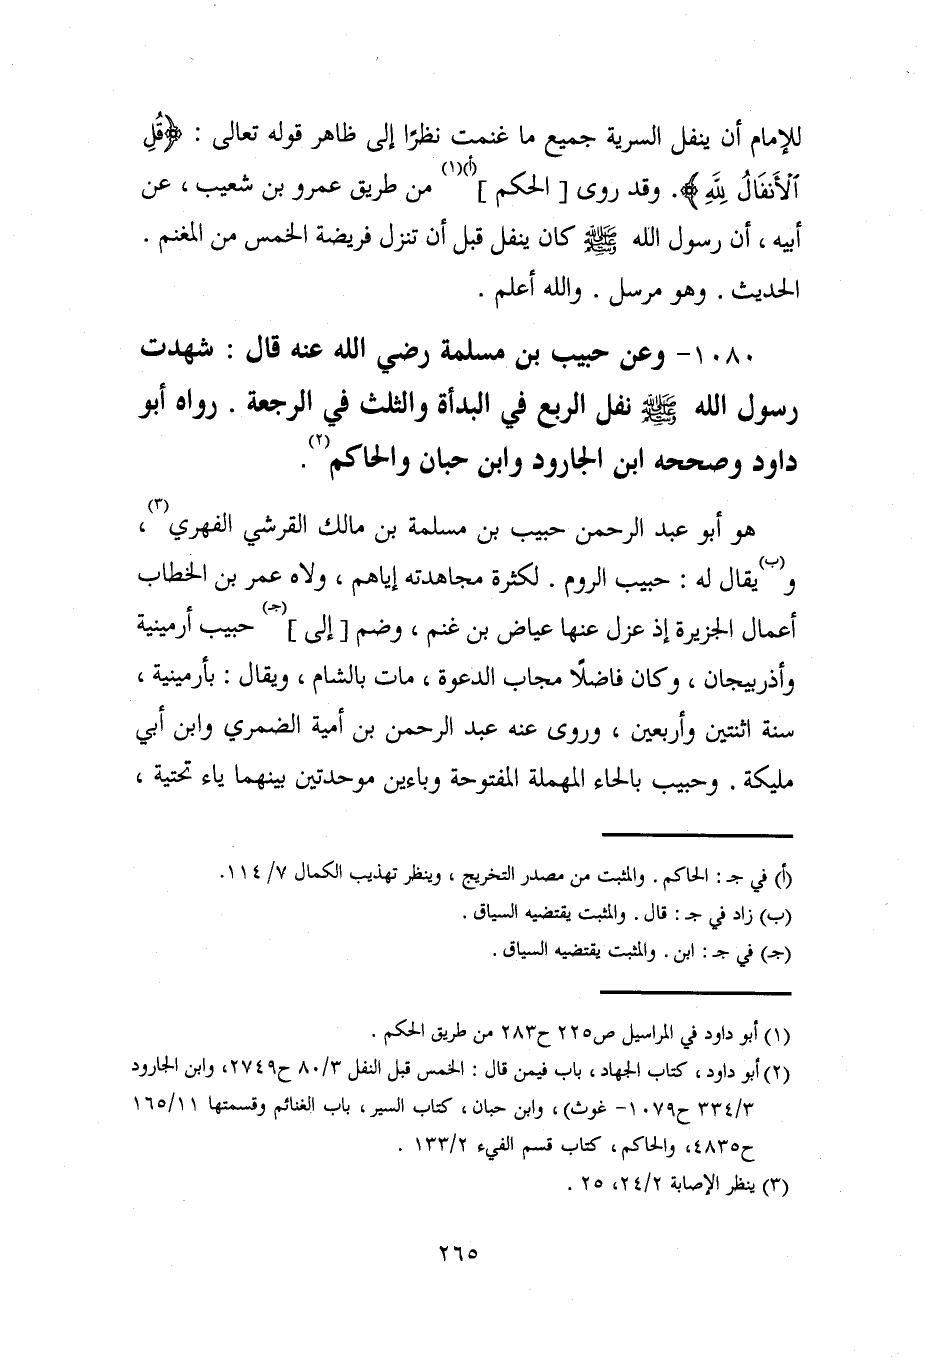 للإمام أن ينفل السرية جميع ما غنمت نظرًا إلى ظاهر قوله تعالى : ﴿قُلِ
ٱلْأَنفَالُ لِلَّهِ﴾. وقد روى [ الحكم ](أ)(١) من طريق عمرو بن شعيب ، عن
أبيه ، أن رسول الله ﷺ كان ينفل قبل أن تنزل فريضة الخمس من المغنم .
الحديث . وهو مرسل . والله أعلم .
١٠٨٠- وعن حبيب بن مسلمة رضي الله عنه قال : شهدت
رسول الله ﷺ نفل الربع في البدأة والثلث في الرجعة . رواه أبو
داود وصححه ابن الجارود وابن حبان والحاكم(٢).
هو أبو عبد الرحمن حبيب بن مسلمة بن مالك القرشي الفهري(٣)،
و(ب)يقال له : حبيب الروم . لكثرة مجاهدته إياهم ، ولاه عمر بن الخطاب
أعمال الجزيرة إذ عزل عنها عياض بن غنم ، وضم [ إلى ](جـ) حبيب أرمينية
وأذربيجان ، وكان فاضلًا مجاب الدعوة ، مات بالشام ، ويقال : بأرمينية ،
سنة اثنتين وأربعين ، وروى عنه عبد الرحمن بن أمية الضمري وابن أبي
مليكة . وحبيب بالحاء المهملة المفتوحة وباءين موحدتين بينهما ياء تحتية ،
(أ) في جـ : الحاكم . والمثبت من مصدر التخريج ، وينظر تهذيب الكمال ٧/ ١١٤.
(ب) زاد في جـ : قال . والمثبت يقتضيه السياق .
(جـ) في جـ : ابن . والمثبت يقتضيه السياق .
(١) أبو داود في المراسيل ص٢٢٥ ح٢٨٣ من طريق الحكم .
(٢) أبو داود ، كتاب الجهاد ، باب فيمن قال : الخمس قبل النفل ٨٠/٣ ح٢٧٤٩، وابن الجارود
٣٣٤/٣ ح١٠٧٩- غوث) ، وابن حبان ، كتاب السير ، باب الغنائم وقسمتها ١٦٥/١١
ح٤٨٣٥، والحاكم ، كتاب قسم الفيء ١٣٣/٢ .
(٣) ينظر الإصابة ٢٤/٢، ٢٥ .
٢٦٥